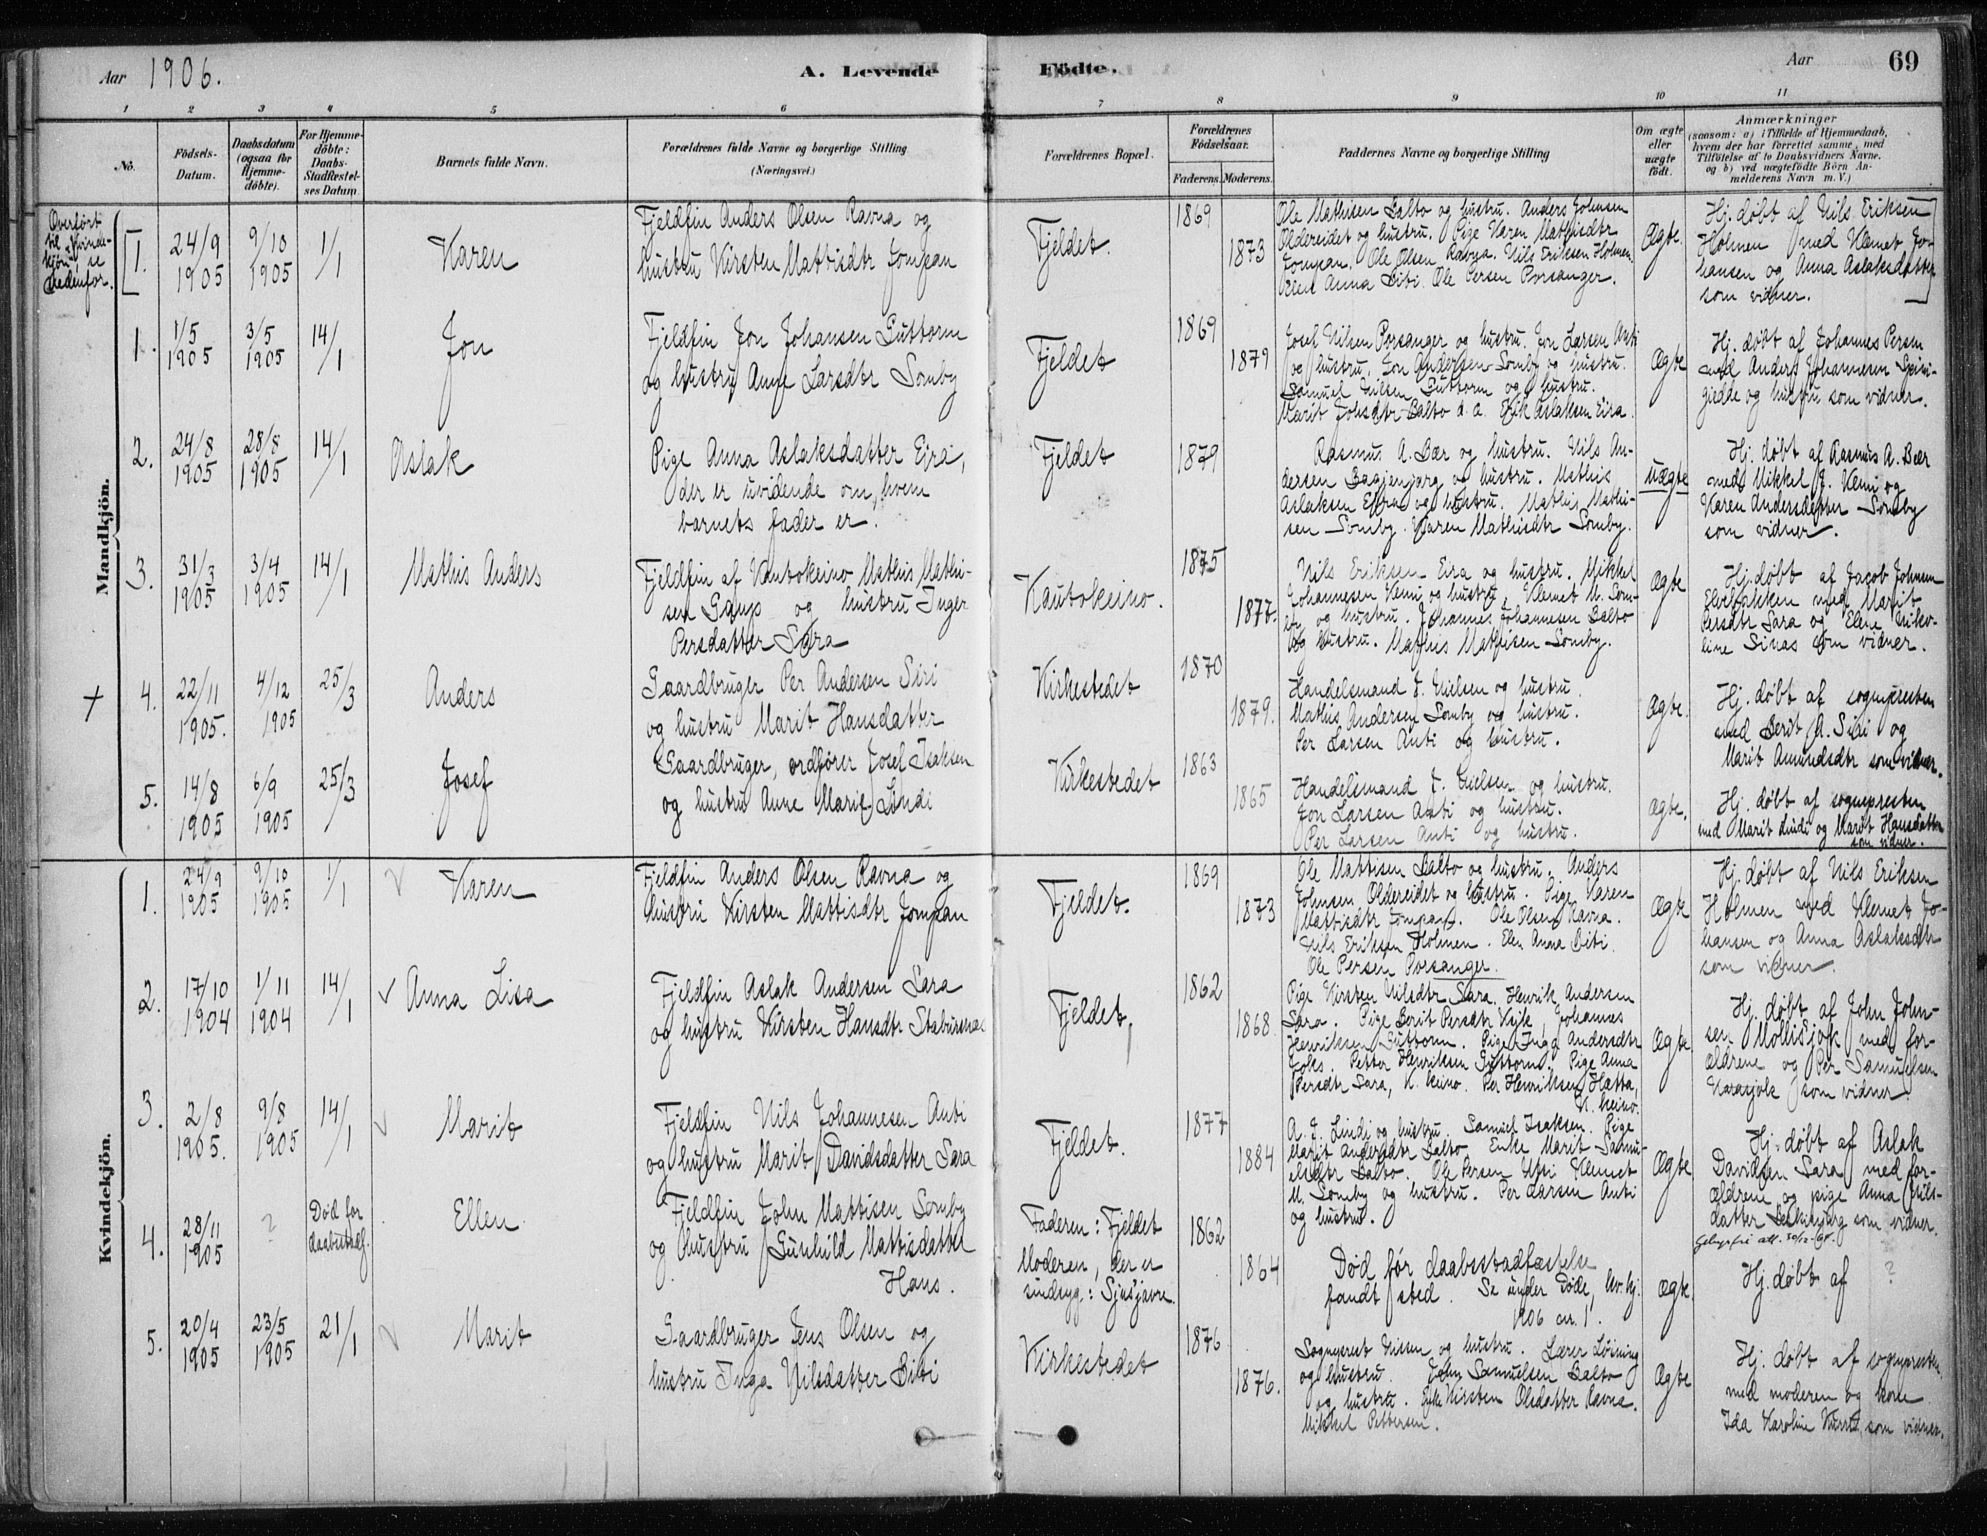 Aar 1906.
A. Levende Födte.
Aar
69
1 2 3 4 5 6 7 8 9 10 11
No.
Födsels-Datum.
Daabsdatum (ogsaa for Hjemme-döbte).
For Hjemme-döbte: Daabs-Stadfæstel-ses Datum.
Barnets fulde Navn.
Forældrenes fulde Navne og borgerlige Stilling
(Næringsvei.)
Forældrenes Bopæl.
Forældrenes Födselsaar.
Faderens. Moderens.
Faddernes Navne og borgerlige Stilling
Om ægte eller uægte födt.
Anmærkninger
(saasom: a) i Tilfælde af Hjemmedaab,
hvem der har forrettet samme, med
Tilföielse af to Daabsvidners Navne,
og b) ved uægtefödte Börn An-
melderens Navn m. V.)
Mandkjön.
Overført
til Kvinde-
kjön se
nedenfor.
1. 24/9 1905 9/10 1905 1/1 Karen
Fjeldfin Anders Olsen Ravna og
hustru Kirsten Mattisdtr Jompan
Fjeldet. 1869 1873
Ole Mathisen Balto og hustru. Anders Johnsen
Oldereidet og hustru. Pige Karen Mathisdtr
Jompan. Ole Olsen Ravna. Nils Eriksen Holmen.
Anna Biti. Ole Persen Porsanger.
Ægte.
Hj. døbt af Nils Eriksen
Holmen med Klemet Jo-
hansen og Anna Aslaksdatter
som vidner.
1. 1/5 1905 3/5 1905 14/1 Jon
Fjeldfin Jon Johansen Guttorm
og hustru Anne Larsdtr Somby
Fjeldet 1869 1879
Josef Nilsen Porsanger og hustru. Jon Larsen Anti
og hustru. Jon Andersen Somby og hustru.
Samuel Nilsen Guttorm og hustru.
Marit Johsdtr Balto d.a. Erik Aslaksen Eira.
Ægte
Hj. døbt af Johannes Persen
med Anders Johannesen
og hustru som vidner.
2. 24/8 1905 28/8 1905 14/1 Aslak
Pige Anna Aslaksdatter Ejra,
der er uvidende om, hvem
barnets fader er.
Fjeldet 1879
Rasmus A. Bær og hustru. Nils An-
dersen og hustru. Mathis
Aslaksen Ejra og hustru. Mathis Mathi-
sen Somby. Karen Mathisdtr Somby.
uægte
Hj. døbt af Rasmus A. Bær
med Mikkel J. Kemi og
Karen Andersdatter Somby
som vidner.
3. 31/3 1905 3/4 1905 14/1 Mathis Anders
Fjeldfin af Kautokeino Mathis Mathi-
sen Gaup og hustru Inger
Persdatter Sara
Kautokeino. 1875 1877.
Nils Eriksen Eira og hustru. Mikkel
Johannesen Kemi og hustru. Klemet M. Som-
by og hustru. Johannes Johannesen Balto
og hustru. Mathis Mathisen Somby.
Ægte
Hj. døbt af Jacob Johnsen
Elvebakken med Marit
Persdtr Sara og Elene
Sinas som vidner.
+ 4. 22/11 1905. 4/12 1905 25/3 Anders
Gaardbruger Per Andersen Siri
og hustru Marit Hansdatter
Kirkestedet 1870 1879.
Handelsmand J. Nielsen og hustru.
Mathis Andersen Somby og hustru.
Per Larsen Anti og hustru.
Ægte.
Hj. døbt af sognepresten
med Berit A. Siri og
Marit Amundsdtr som vidner.
5. 14/8 1905 6/9 1905 25/3 Josef
Gaardbruger, ordfører Josef Isaksen
og hustru Anne Marie Lindi
Kirkestedet 1863 1865
Handelsmand J. Nielsen og hustru.
Jon Larsen Anti og hustru.
Per Larsen Anti og hustru.
Ægte.
Hj. døbt af sognepresten
med Marit Lindi og Marit Hansdatter
som vidner.
Kvindekjön.
1. 24/9 1905 9/10 1905 1/1 Karen
Fjeldfin Anders Olsen Ravna og
hustru Kirsten Mattisdtr Jompan
Fjeldet. 1869 1873
Ole Mattisen Balto og hustru. Anders
Johnsen Oldereidet og hustru. Pige Karen
Mattisdtr Jompan. Ole Olsen Ravna.
Nils Eriksen Holmen. Elen Anna Biti.
Ole Persen Porsanger.
Ægte
Hj. døbt af Nils Eriksen
Holmen med Klemet Jo-
hansen og Anna Aslaksdtr
som vidner.
2. 17/10 1904 1/11 1904 14/1 Anna Lisa
Fjeldfin Aslak Andersen Sara
og hustru Kirsten Hansdtr Stabursnæs
Fjeldet, 1862 1868
Pige Kirsten Nilsdtr Sara. Henrik Andersen
Sara. Pige Berit Persdtr Johannes
Henriksen Guttorm. Pige Inga Andersdtr
Joks. Petter Henriksen Guttorm. Pige Anna
Persdtr Sara, K. keino. Per Henriksen Hætta,
K. keino.
Ægte
Hj. døbt af John John-
sen Mollisjok med for-
ældrene og Per Samuelsen
Karasjok som vidner.
3. 2/8 1905. 9/8 1905 14/1 Marit
Fjeldfin Nils Johannesen Anti
og hustru Marit Davidsdatter Sara
Fjeldet. 1877 1884
A. J. Lindi og hustru. Samuel Isaksen. Pige
Marit Andersdtr Balto. Enke Marit Samu-
elsdtr Balto. Ole Persen Utsi. Klemet
M. Somby og hustru. Per Larsen Anti
og hustru.
Ægte
Hj. døbt af Aslak
Davidsen Sara med for-
ældrene og pige Anna Nils-
datter som vidner.
4. 28/11 1905 ? Død før daabsstadf. Ellen
Fjeldfin John Mattisen Somby
og hustru Gunhild Mattisdatter
Hans.
Faderen: Fjeldet
Moderen, der er
sindsyg: Sjusjavre. 1862 1864
Død før daabsstadfæstelse
fandt sted. Se under Døde, kv.kj.
1906 nr. 1.
Ægte
Hj. døbt af ?
5. 20/4 1905 23/5 1905 21/1 Marit
Gaardbruger Jens Olsen og
hustru Inga Nilsdatter Biti
Kirkestedet 1876 1876.
Sogneprest Nissen og hustru. Lærer
og hustru. John Samuelsen Balto
og hustru. Enke Kirsten Olsdatter Ravna.
Mikkel Pettersen.
Ægte
Hj. døbt af sognepresten
med moderen og kone
Ida Karoline som vidner.